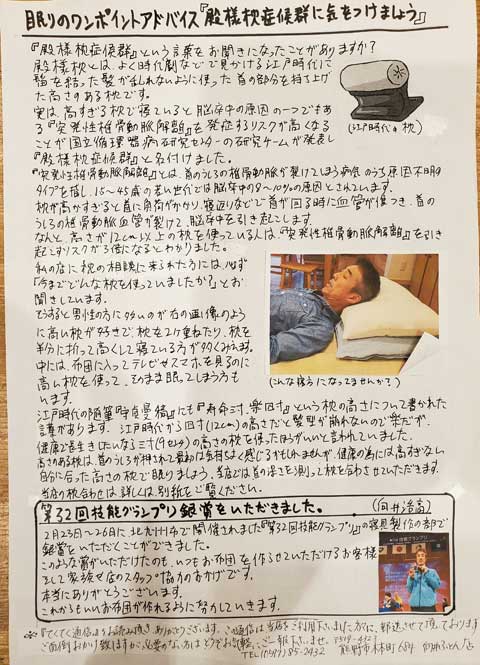 眠りのワンポイントアドバイス『殿様枕症候群に気をつけましょう』
『殿様枕症候群』という言葉をお聞きになったことがありますか？
殿様枕とは、よく時代劇などで見かける江戸時代に
髷を結った髪が乱れないように使った首の部分を持ち上げ
た高さのある枕です。
実は、高すぎる枕で寝ていると脳卒中の原因の一つでもあ
る『突発性椎骨動脈解離』を発症するリスクが高くなる
ことが国立循環器病研究センターの研究チームが発表し
『殿様枕症候群』と名付けました。
(江戸時代の枕)
『突発性椎骨動脈解離』とは、首のうしろの椎骨動脈が裂けてしまう病気のうち原因不明の
タイプを指し、15～45歳の若い世代では脳卒中の8～10%の原因とされています。
枕が高かすぎると首に負荷がかかり、寝返りなどで首が回る時に血管が傷つき、首の
うしろの椎骨動脈血管が裂けて、脳卒中を引き起こします。
なんと、高さが12cm以上の枕を使っている人は、『突発性椎骨動脈解離』を引き
起こすリスクが3倍になるとわかりました。
私の店に枕の相談に来られた方には、必ず
「今までどんな枕を使っていましたか？」とお
聞きしています。
そうすると男性の方に多いのが右の画像のよう
に高い枕が好きで、枕を2ケ重ねたり、枕を
半分に折って高くして寝ている方が多くみえます。
中には、布団に入ってテレビやスマホを見るのに
高い枕を使って、そのまま眠ってしまう方も
います。
(こんな寝方になってませんか？)
江戸時代の随筆『守貞謾稿』にも『寿命三寸、楽四寸』という枕の高さについて書かれた
諺があります。江戸時代から四寸(12cm)の高さだと髪型が崩れないので楽だが、
健康で長生きしたいなら三寸(9センチ)の高さの枕を使ったほうがいいと言われていました。
高さのある枕は、首のうしろが持ちされて最初は気持ちよく感じるかもしれませんが、健康の為には高すぎない
自分に合った高さの枕で眠りましょう。当店では首の深さを測って枕を合わせていただきます。
当店の枕合わせは、詳しくは、別紙をご覧ください。
第32回技能グランプリ銀賞をいただきました。 (向井浩高)
2月23日～26日に北九州市で開催されました『第32回技能グランプリ』の寝具製作の部で
銀賞をいただくことができました。
このような賞がいただけたのも、いつもお布団を作らせていただけるお客様
そして家族や店のスタッフの協力のおかげです。
本当にありがとうございます。
これからもいいお布団が作れるように努力していきます。
＊『てくてく通信』をお読み頂き、ありがとうございます。この通信は当店をご利用下さいました方に、郵送させて頂いております
ご面倒おかけ致しますが、必要のない方はどうぞお気軽にご一報下さいませ。 〒519-4323
TEL(0597)85-2432 熊野市木本町684 向井ふとん店